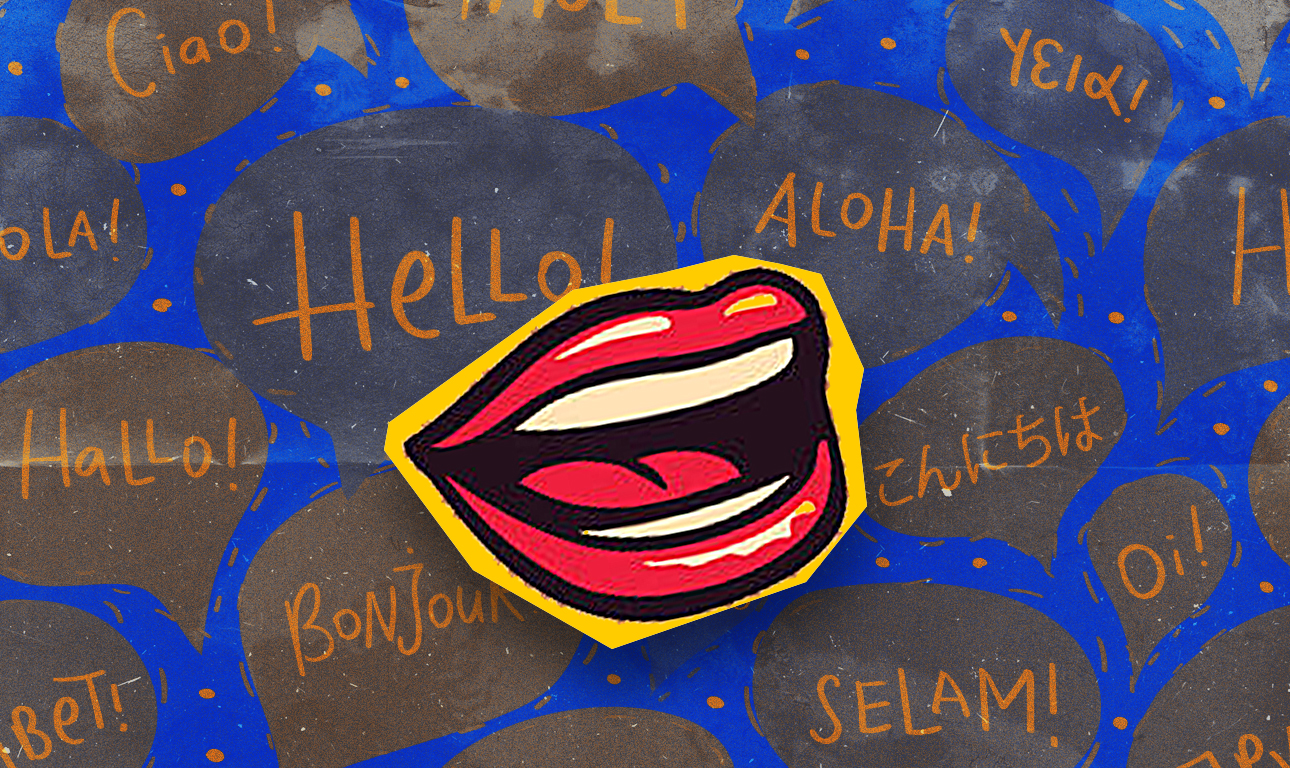 Ciao!
γεια!
OLA!
Hello!
ALOHA!
HaLLo!
こんにちは
Oi!
BONJOUR
BeT!
SELAM!